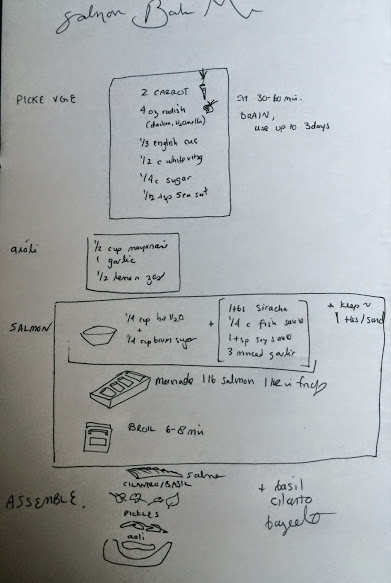 Salmon Bah Mi
PICKE VGE
2 CARROT
4 oz radish
(daikon,
1/3 english cuc
1/2 c whitevineg
1/4 c sugar
1/2 tsp sea salt
SIT 30-60 min.
DRAIN,
use up to 3 days
aioli
1/2 cup mayonaise
1 garlic
1/2 lemon zest
SALMON
1/4 cup hot H2O
+
1/4 cup brown sugar
+
1 tbs siracha
1/4 c fish sauce
1 tsp soy sauce
3 minced garlic
+ keep
1 tbs/sand
Marinade 1 lb salmon 1 hr in fridge
BROIL 6-8 min
ASSEMBLE.
salmon
CILANTRO/BASIL
PICKLES
aoli
+ basil
cilantro
baguette